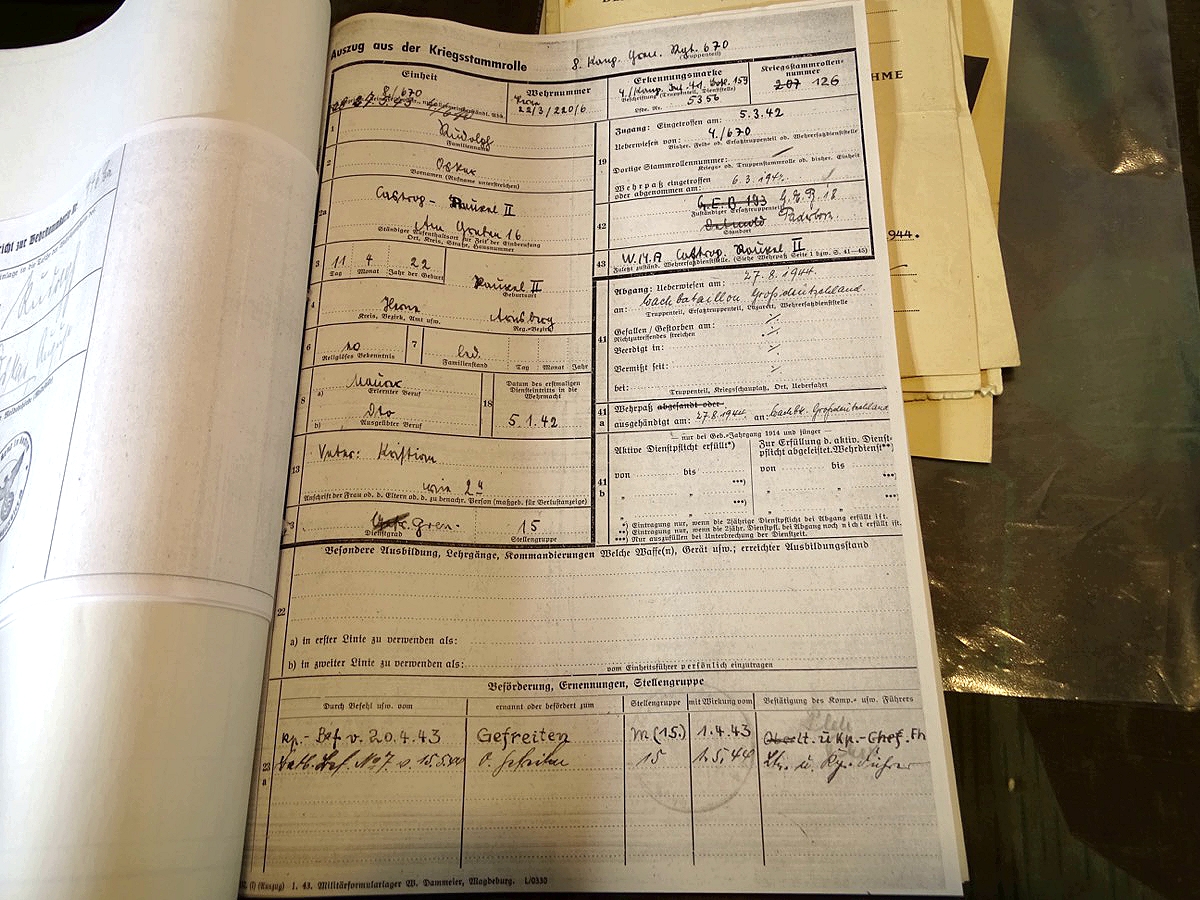 Auszug aus der Kriegsstammrolle
8. Komp. Gren. Rgt. 670
(Truppenteil)
Einheit
8./670
Wehrnummer
Herne 22/3/220/6
Erkennungsmarke
Beschriftung (Truppenteil, Dienststelle)
Lfde. Nr. 5356
Kriegsstammrollen-
nummer
207 126
1 Rudolf
Familienname
2 Oskar
Vornamen (Rufname unterstreichen)
2a Castrop-Rauxel II
Am Graben 16
Ständiger Aufenthaltsort zur Zeit der Einberufung
Ort, Kreis, Straße, Hausnummer
3 11 4 22
Tag Monat Jahr der Geburt
Rauxel II
Geburtsort
4 Herne Arnsberg
Kreis, Bezirk, Amt usw. Reg.-Bezirk
6 Religiöses Bekenntnis
7 led.
Familienstand Tag Monat Jahr
8 a) Maurer
Erlernter Beruf
b) dto
Ausgeübter Beruf
18 Datum des erstmaligen
Diensteintritts in die
Wehrmacht
5.1.42
13 Vater: Kristian
wie 2a
Anschrift der Frau od. d. Eltern od. d. zu benachr. Person (maßgeb. für Verlustanzeige)
Gren. 15
Dienstgrad Stellengruppe
19 Zugang: Eingetroffen am: 5.3.42
Ueberwiesen von: 4./670
Bisher. Feld- od. Ersatztruppenteil od. Wehrersatzdienststelle
Dortige Stammrollennummer:
Kriegs- od. Truppenstammrolle od. bisher. Einheit
Wehrpaß eingetroffen
oder abgenommen am: 6.3.194
42 G.E.B. 193 G.E.B. 18
Zuständiger Ersatztruppenteil
Detmold Paderborn.
Standort
43 W.M.A Castrop. Rauxel II
Zuletzt zuständ. Wehrersatzdienststelle. (Siehe Wehrpaß Seite 1 bzw. S. 41—45)
41 Abgang: Ueberwiesen am: 27.8.1944.
an: Wachbataillon Großdeutschland.
Truppenteil, Ersatztruppenteil, Lazarett, Wehrersatzdienststelle
Gefallen / Gestorben am:
Nichtzutreffendes streichen
Beerdigt in:
Vermißt seit:
bei:
Truppenteil, Kriegsschauplatz, Ort, Ueberfahrt
41 a Wehrpaß abgesandt oder
ausgehändigt am: 27.8.1944 an: Wachbtl. Großdeutschland
nur bei Geb.-Jahrgang 1914 und jünger
41 b Aktive Dienstpflicht erfüllt*)
von bis
***)
***)
Zur Erfüllung d. aktiv. Dienst-
pflicht abgeleistet. Wehrdienst**)
von bis
***)
***)
*) Eintragung nur, wenn die 2jährige Dienstpflicht bei Abgang erfüllt ist.
**) Eintragung nur, wenn die 2jähr. Dienstpfl. bei Abgang noch nicht erfüllt ist.
***) Nur auszufüllen bei Unterbrechung der Dienstzeit.
Besondere Ausbildung, Lehrgänge, Kommandierungen Welche Waffe(n), Gerät usw.; erreichter Ausbildungsstand
22
a) in erster Linie zu verwenden als:
b) in zweiter Linie zu verwenden als:
vom Einheitsführer persönlich einzutragen
Beförderung, Ernennungen, Stellengruppe
Durch Befehl usw. vom ernannt oder befördert zum Stellengruppe mit Wirkung vom Bestätigung des Komp.- usw. Führers
Kp.-Bef v. 20.4.43 Gefreiten M (15.) 1.4.43 Oberlt. u Kp.-Chef. Fh
23 a Batl. Bef. No 7 v. 15.5.44 O. Gefreiten 15 1.5.44 Ltn. u. Kp. Führer
(Auszug) 1. 43. Militärformularlager W. Dammeier, Magdeburg. L/0330
HME
1944.